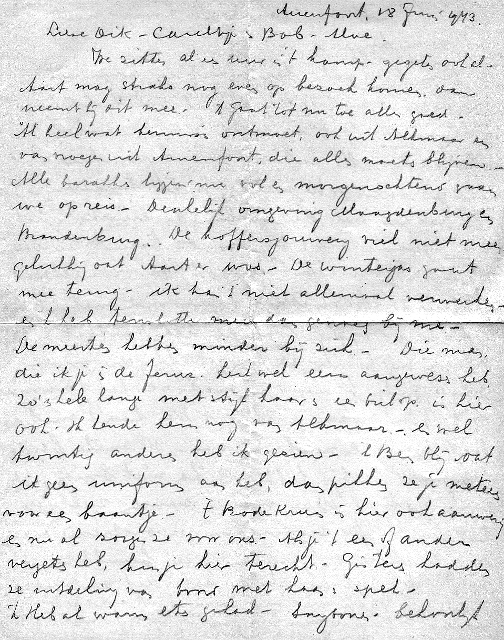 Amersfoort, 18 Juni 1943.
Lieve Dik - Careltje & Bob - Moe.
We zitten al een uur in 't kamp - gegeten ook al -
Aart mag straks nog even op bezoek komen, dan
neemt hij dit mee. 't Gaat tot nu toe alles goed -
Al heel wat kennissen ontmoet, ook uit Alkmaar en
van vroeger uit Amersfoort, die alles moets blijven -
Alle barakken liggen nu vol en morgenochtend gaan
we op reis - Denkelijk omgeving Maagdenburg en
Brandenburg. De koffersjouwerij viel niet mee
gelukkig dat Aart er was - De winterjas gaat
mee terug - ik kan 't niet allemaal
en 'k heb meer dan genoeg bij me -
De meesten hebben minder bij zich - Die man,
die ik je in de wel eens aangewezen heb,
zo'n hele lange met stijf haar & een bril op is hier
ook. Ik kende hem nog van Alkmaar - en wel
twintig anderen heb ik gezien - 'k Ben blij dat
ik geen uniform aan heb, dan pikken ze je meteen
voor een baantje - 't Rode Kruis is hier ook aanwezig
en nu al zorgen ze voor ons - Als je 't een of ander
vergeten heb, kun je hier terecht - Gisteren hadden
ze uitdeling van brood met kaas & spek -
'k Heb al warm eten gehad - - behoorlijk